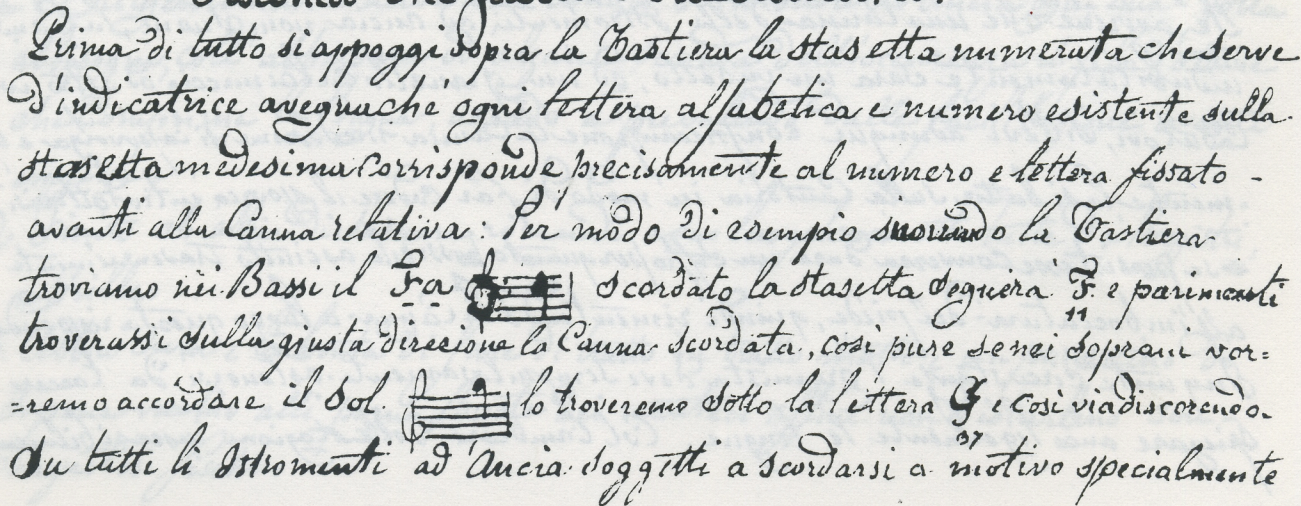 Prima di tutto si appoggi sopra la Tastiera la stasetta numerata che serve
d'indicatrice avegnaché ogni lettera alfabetica e numero esistente sulla
stasetta medesima corrisponde precisamente al numero e lettera fissato -
avanti alla Canna relativa: Per modo di esempio suonando la Tastiera
troviamo nei Bassi il Fa scordato la stasetta segnerà F. e parimenti
11
troverassi sulla giusta direzione la Canna scordata, così pure se nei soprani vor=
=remo accordare il Sol. lo troveremo sotto la lettera G e così via discorendo.
37
Su tutti li Istromenti ad Ancia soggetti a scordarsi a motivo specialmente